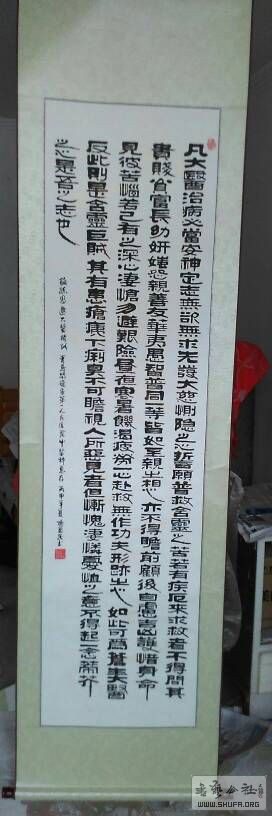 凡大醫治病必當安神定志無欲無求先發大慈惻隱之心誓願普救含靈之苦若有疾厄來求救者不得問其
貴賤貧富長幼妍媸怨親善友華夷愚智普同一等皆如至親之想亦不得瞻前顧後自慮吉凶護惜身命
見彼苦惱若己有之深心悽愴勿避艱險晝夜寒暑饑渴疲勞一心赴救無作功夫形跡之心如此可為蒼生大醫
反此則是含靈巨賊其有患瘡痍下痢臭不可瞻視人所惡見者但慚愧悽憐憂恤之意不得起一念蒂芥
之心是吾之志也
孫思邈大醫精誠
書藝公社
WWW.SHUFA.ORG